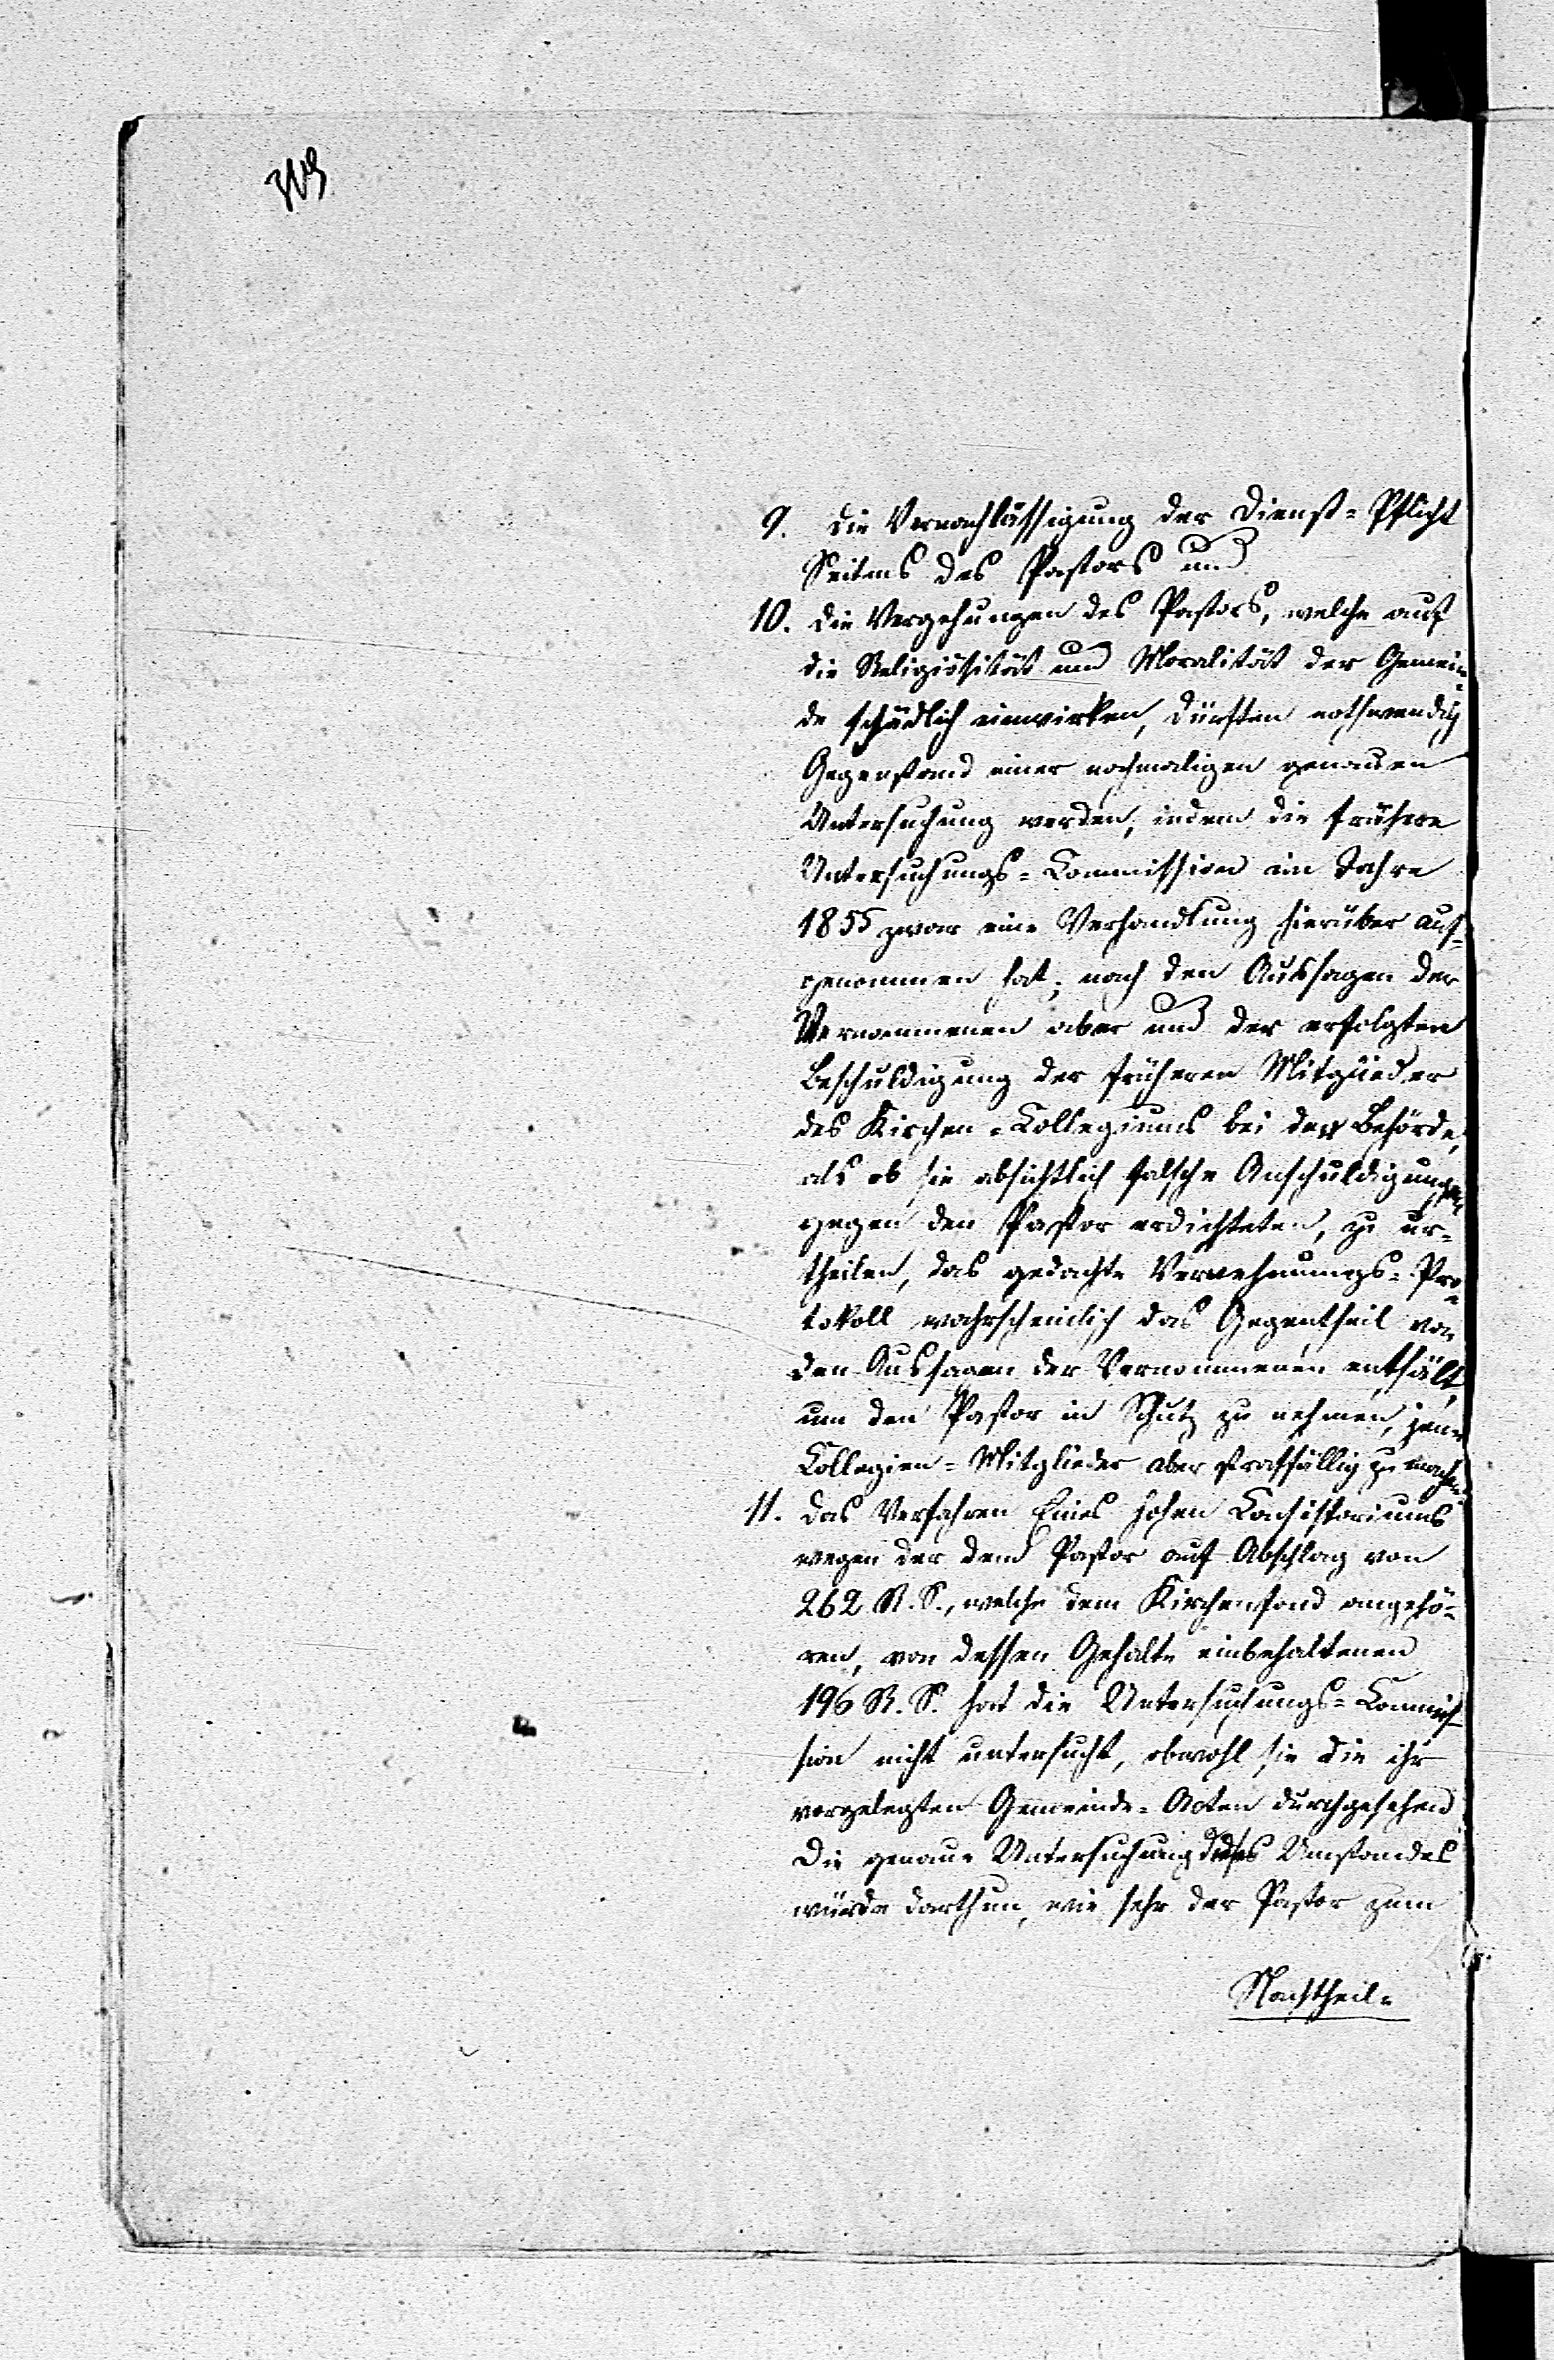 9. die Vernachlässigung der Dienst-Pflicht
Seitens des Pastors und
10. die Vergehungen des Pastors, welche auf
die Religiösität und Moralität der Gemein-
de schädlich einwirken, dürften nothwendig
Gegenstand einer nochmaligen genauen
Untersuchung werden, indem die frühere
Untersuchungs-Commission im Jahre
1855 zwar eine Verhandlung hierüber auf-
genommen hat; nach den Aussagen der
Vernommenen aber und der erfolgten
Beschuldigung der früheren Mitglieder
des Kirchen-Collegiums bei der Behörde,
als ob sie absichtlich falsche Anschuldigungen
gegen den Pastor erdichteten, zu ur-
theilen, das gedachte Vernehmungs-Pro-
tokoll wahrscheinlich das Gegentheil von
den Aussagen der Vernommenen enthält,
um den Pastor in Schutz zu nehmen, jene
Collegien-Mitglieder aber straffällig zu machen.
11. das Verfahren Eines Hohen Consistoriums
wegen der dem Pastor auf Abschlag von
262 R. S., welche dem Kirchenfond angehö-
ren, von dessen Gehalte einbehaltenen
196 R. S. hat die Untersuchungs-Commis-
sion nicht untersucht, obwohl sie die ihr
vorgelegten Gemeinde-Acten durchgesehen
Die genaue Untersuchung dieses Umstandes
würde darthun, wie sehr der Pastor zum
Nachtheil-